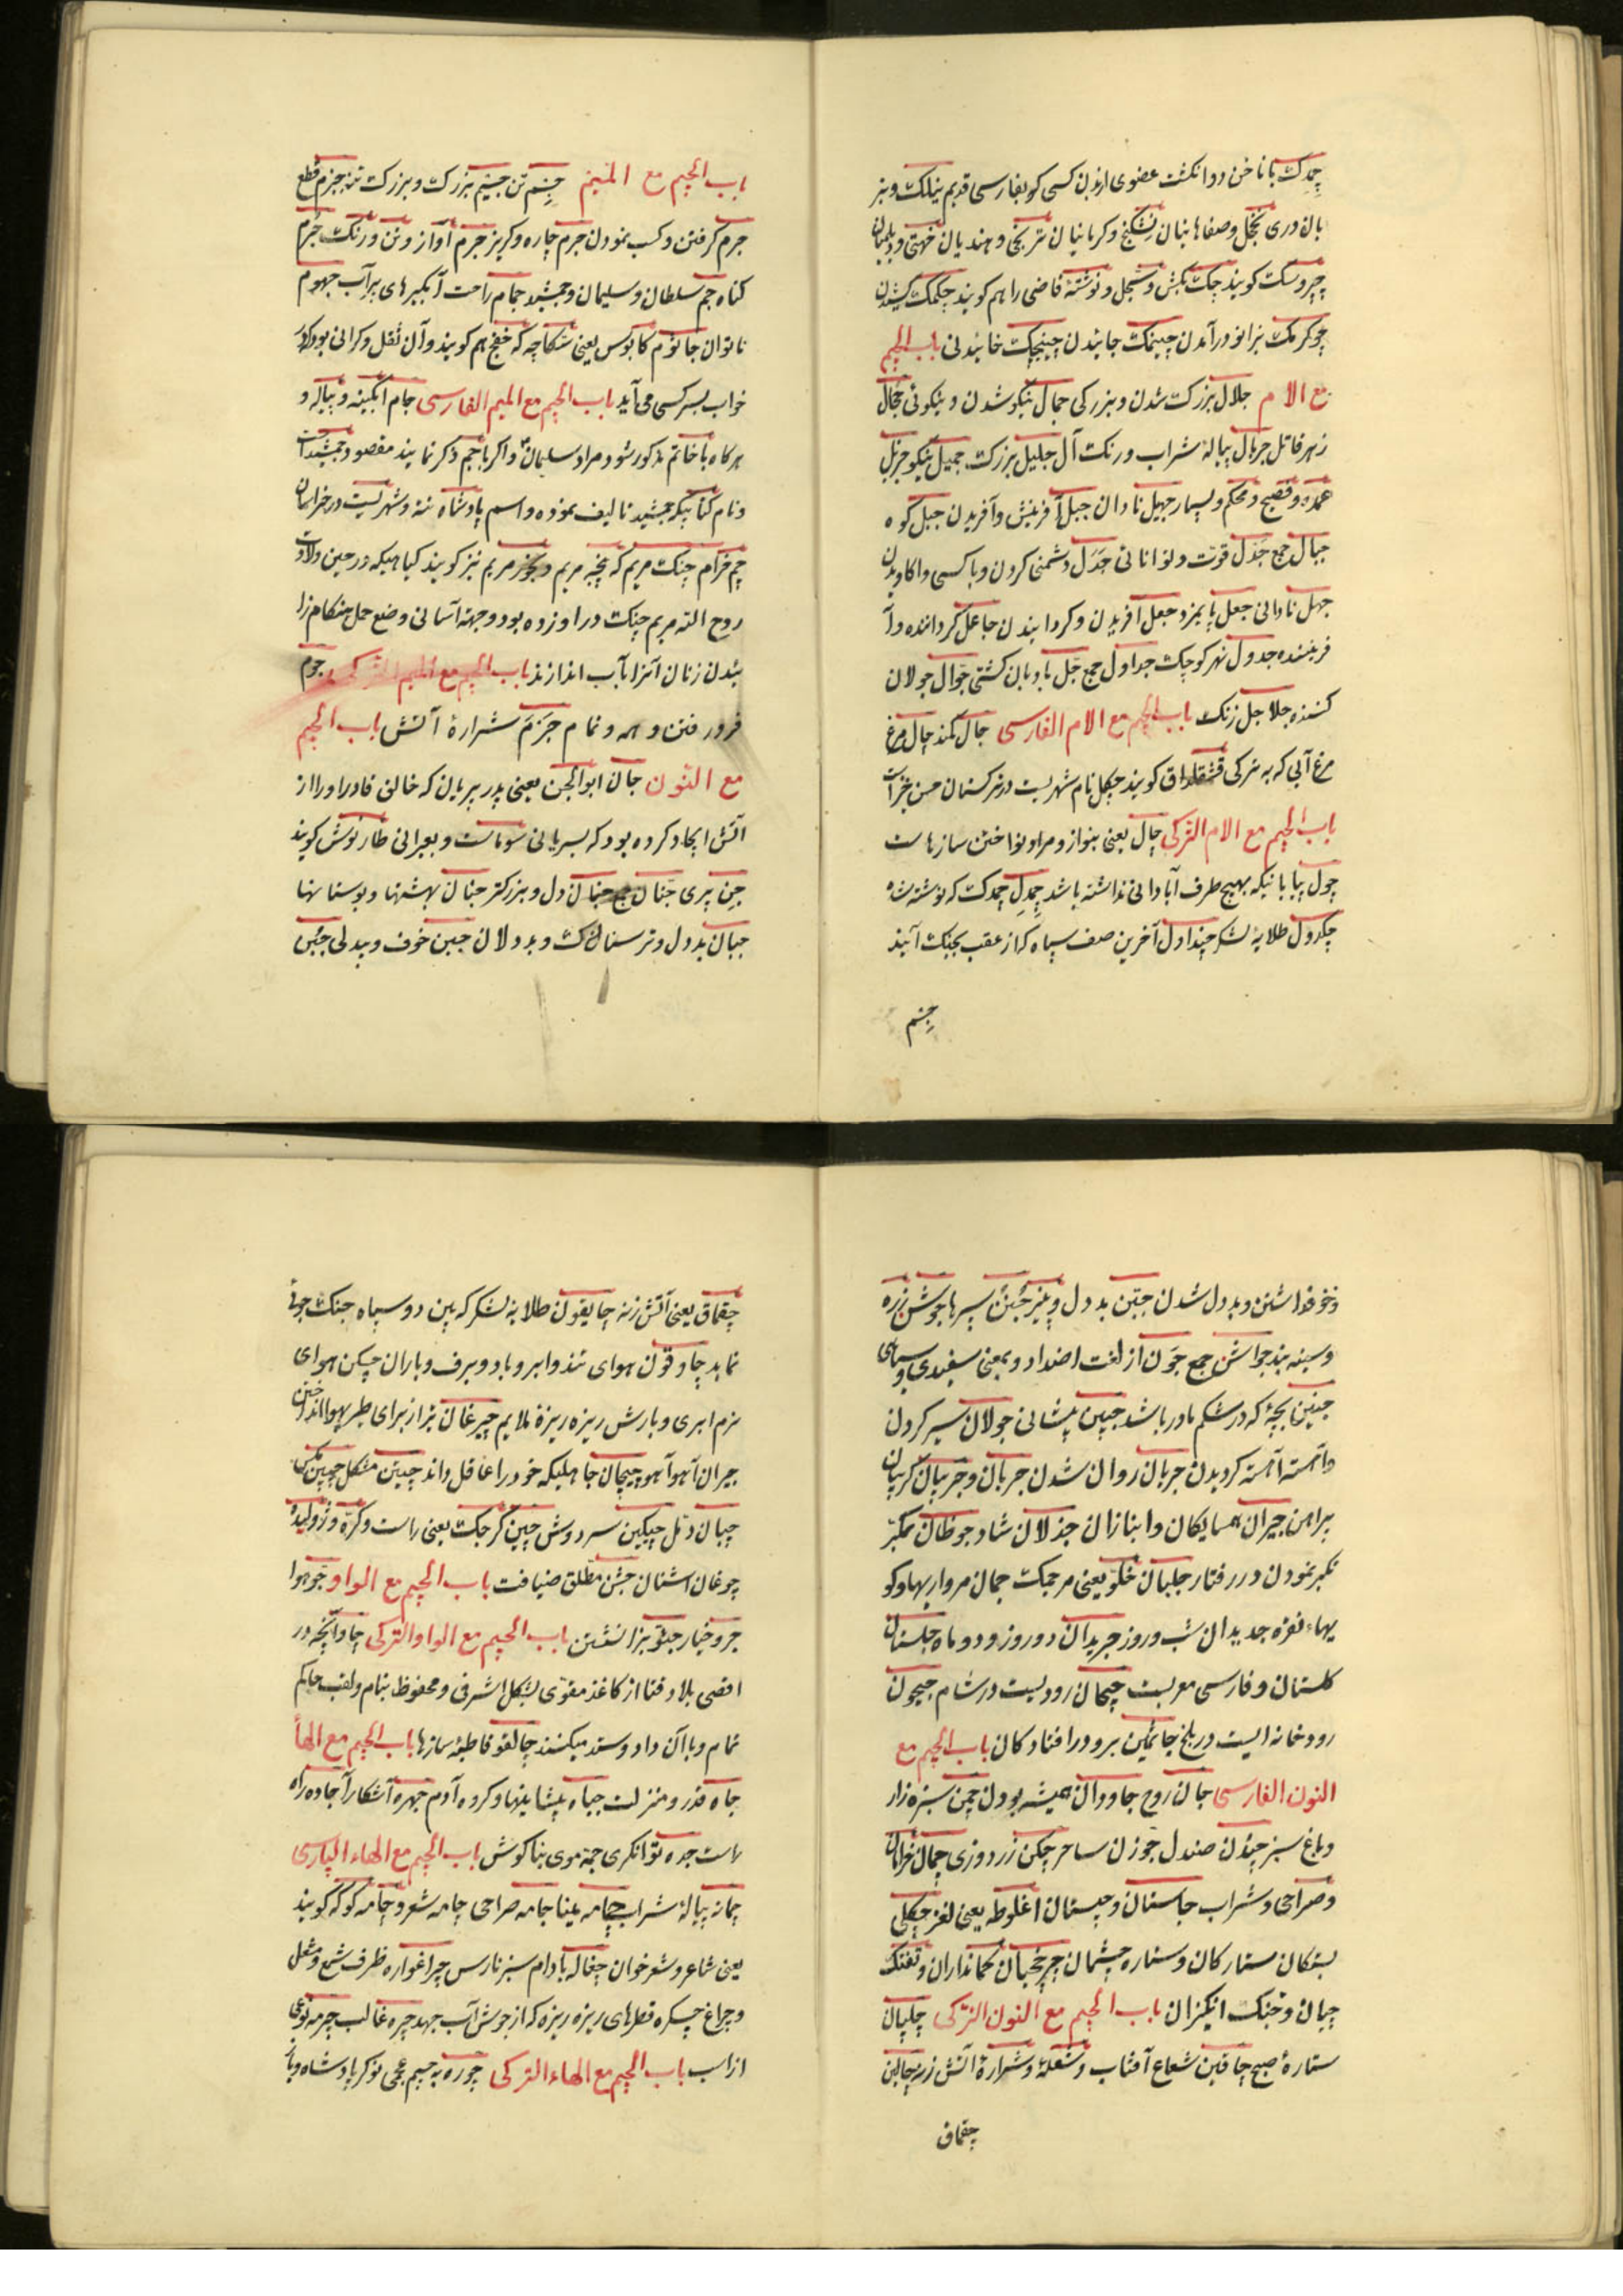 چمدک با ناخن دو انکشت عضوی از بدن کسی کو بفارسی قدیم نیلک و بز
بان دری نخجل وصفاهانیان نشکنج وکرمانیان ترنجی وهندیان
کویند چک بکش وسجل ونوشتهٔ قاضی را هم کویند چکمک کشیدن
چوکرمک بزانو درآمدن چینمک جائیدن چینجک خائیدنی باب الجیم
مع الام جلال بزرک شدن وبزرکی جمال نیکو شدن ونیکوئی جحال
زهر قاتل جریال پیالهٔ شراب ورنک آل جلیل بزرک جمیل نیکو جزیل
عمده وفصیح ومحکم وبسیار جهیل نادان جبل آفرینش وآفریدن جبل کوه
جبال جمع جدل قوّت وتوانائی جدل دشمنی کردن وبا کسی واکاویدن
جهل نادانی جعل پایمزد جعل افریدن وکردانیدن جاعل کرداننده وآ
فریننده جدول نهر کوچک جداول جمع جل بادبان کشتی جوال جولان
کننده جلاجل زنک باب الجیم مع الام الفارسی جال کمند چال مرغ
مرغ آبی که به ترکی قشقلداق کویند چکل نام شهریست در ترکستان حسن خیز
باب الجیم مع الام الترکی چال یعنی بنواز ومراد نواختن سازهاست
چول بیابانیکه بهیچ طرف آبادانی نداشته باشد چمدل چمدک که نوشته شد
چکدول طلایهٔ لشکر چنداول آخرین صف سپاه که از عقب بجنک آیند
جسم
باب الجیم مع المیم جسم تن جسیم بزرک وبزرک تن جزم قطع
جرم کرفتن وکسب نمودن جرم چاره وکریز جرم آواز وتن ورنک جرم
کناه جم سلطان وسلیمان وجمشید جمام راحت آبکیرهای پر آب جهوم
ناتوان جاثوم کابوس یعنی سکاچه که خفج هم کویند وآن ثقل وکرانی بود که در
خواب بسر کسی می آید باب الجیم مع المیم الفارسی جام آبکینه وپیاله و
هرکاه با خاتم مذکور شود مراد سلیمان واکر با جم ذکر نمایند مقصود جمشید است
ونام کتابیکه جمشید تالیف نموده واسم پادشاه تته وشهریست در خراسان
چم خرام چنک مریم که پنجه مریم وبخور مریم نیز کویند کیاهیکه در حین ولادت
روح الله مریم چنک در او زده بود وجهة آسانی وضع حمل هنکام زا
ئیدن زنان آنرا بآب اندازند باب الجیم مع المیم الترکی جوم
فرو رفتن وهمه وتمام جزم شرارهٔ آتش باب الجیم
مع النّون جان ابو الجن یعنی پدر پریان که خالق قادر او را از
آتش ایجاد کرده بود که بسریانی سوماست وبعبرانی طارنوش کویند
جن پری جنان جمع جنان دل وبزرکتر جنان بهشتها وبوستانها
جبان بددل وترسناک وبددلان جبن خوف وبیدلی جبن
وبددل شدن جبین بددل وپنیر جنن سپرها جوشن زره
وسینه بند جواشن جمع جون از لغت اضداد وبمعنی سفیدی وسیاهی
جنین بچهٔ که در شکم مادر باشد جبین پیشانی جولان سیر کردن
وآهسته آهسته کردیدن جریان روان شدن جربان وجربان کریبان
پیراهن جیران همسایکان وانبازان جذلان شاد جوظان تکبّر
تکبر نمودن در رفتار جلبان خلّو یعنی مرجمک جمان مرواریدها وکو
یهاء نقره جدیدان شب وروز جریدان دو روز ودو ماه جلستان
کلستان وفارسی معربست جیحان رودیست در شام جیحون
رودخانه ایست در بلخ جاثمین برو درافتادکان باب الجیم مع
النون الفارسی جان روح جاودان همیشه بودن چمن سبزه زار
وباغ سبز چندن صندل جوزن ساحر چکن زردوزی چمان خرامان
وصراحی وشراب جاستان وچیستان اغلوطه یعنی لغز چکلی
بستکان ستارکان وستاره چشمان چرخچیان کمانداران وتفنک
چیان وجنک انکیزان باب الجیم مع النون الترکی چلپان
ستارهٔ صبح چاقین شعاع آفتاب وشعلهٔ وشرارهٔ آتش زنه چالین
چقماق
چقماق یعنی آتش زنه چایقون طلایهٔ لشکر که بین دو سپاه جنک جوئی
نماید چاوقون هوای تند وابر وباد وبرف وباران چسکن هوای
نرم ابری وبارش ریزه ریزهٔ ملایم چیرغان بزار برای طیر
جیران آهو آهو چیچان جاهلیکه خود را عاقل داند چیتین مشکل چیبین مکس
چبان دمّل چیکین سر دوش چین کرجک یعنی راست وکره وژولیده
چوغان اشنان جشن مطلق ضیافت باب الجیم مع الواو جو هوا
جرو خیار جثو بزانشستن باب الجیم مع الواو الترکی چاو آنچه در
اقصی بلاد ختا از کاغذ مقوّی بشکل اشرفی ومحفوظ بنام ولقب حاکم
تمام وبا آن داد وستد میکنند چالقو قاطبهٔ سازها باب الجیم مع الها
جاه قدر ومنزلت جباه پیشانیها وکروه آدم جهره آشکارا جاده راه
راست جده توانکری جمه موی بناکوش باب الجیم مع الهاء الپارسی
چمانه پیالهٔ شراب چامه غینا جامه صراحی چامه شعر وچامه کو که کویند
یعنی شاعر وشعرخوان چغاله بادام سبز نارس چراغواره ظرف شمع ومشعل
وچراغ چسکره قطرهای ریزه ریزه که از جوش آب جهد چیره غالب چرمه نوعی
از اسب باب الجیم مع الهاء الترکی چوره به جیم عجمی نوکر پادشاه ویا